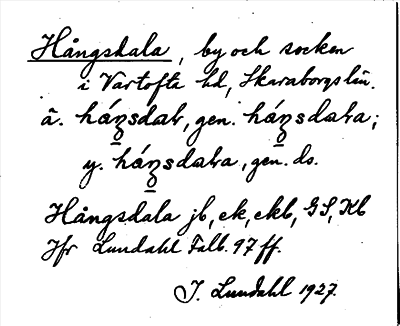 Hångsdala, by och socken
i Vartofta hd, Skaraborgs län.
ä. háŋ̱sdaḷ, gen. háŋ̱sdaḷa;
y. háŋ̱sdaḷa, gen. ds.
Hångsdala jb, ek, ekb, GS, Kb
Jfr Lundahl Falb. 97 ff.
I. Lundahl 1927.